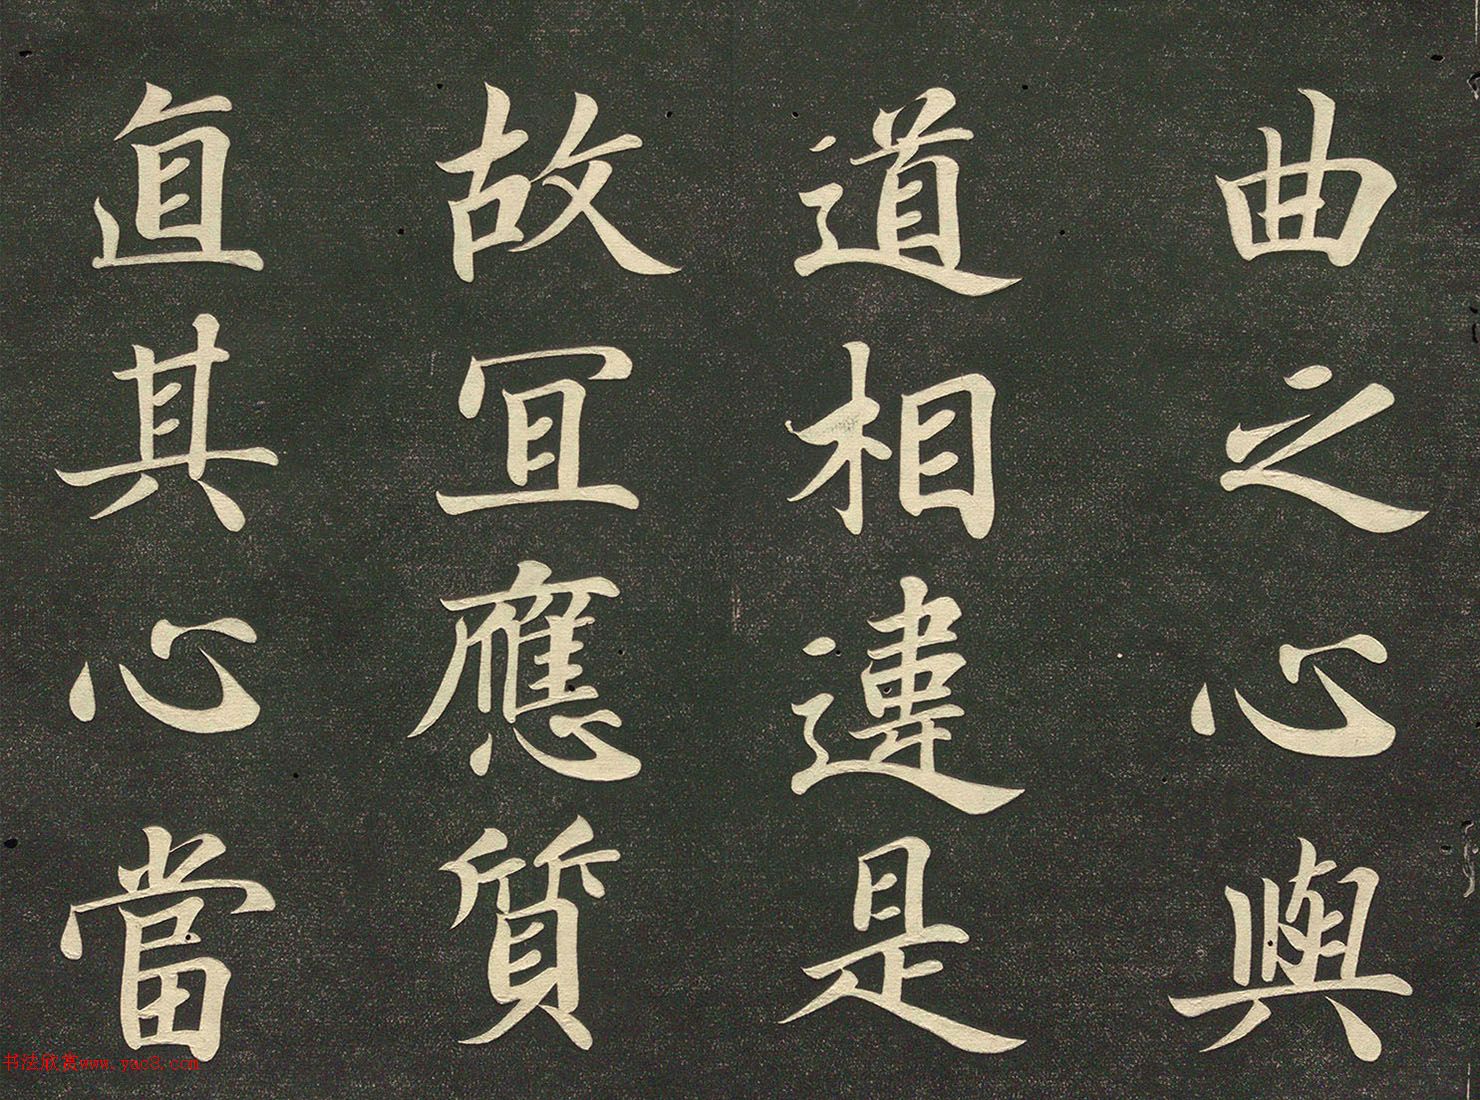 曲之心與
道相違是
故冝應質
直其心當
书法欣赏www.yac8.com